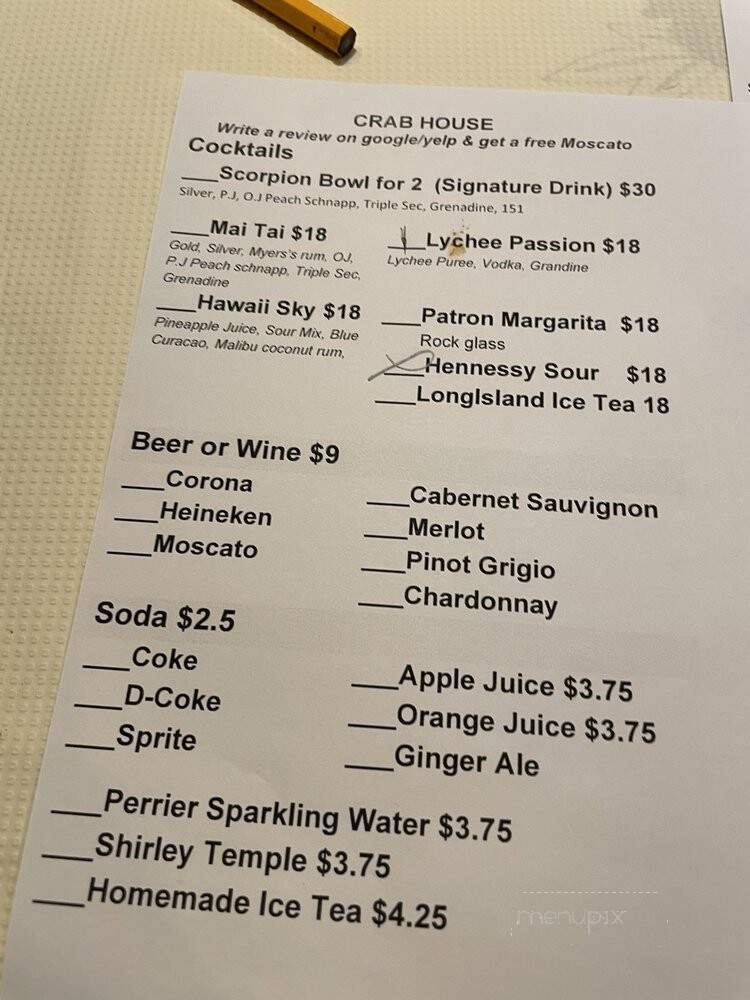 CRAB HOUSE
Write a review on google/yelp & get a free Moscato
Cocktails
___Scorpion Bowl for 2 (Signature Drink) $30
Silver, P.J, O.J Peach Schnapp, Triple Sec, Grenadine, 151
___Mai Tai $18
Gold, Silver, Myers's rum, OJ,
P.J Peach schnapp, Triple Sec,
Grenadine
___Lychee Passion $18
Lychee Puree, Vodka, Grandine
___Hawaii Sky $18
Pineapple Juice, Sour Mix, Blue
Curacao, Malibu coconut rum,
___Patron Margarita $18
Rock glass
___Hennessy Sour $18
___LongIsland Ice Tea 18
Beer or Wine $9
___Corona
___Heineken
___Moscato
___Cabernet Sauvignon
___Merlot
___Pinot Grigio
___Chardonnay
Soda $2.5
___Coke
___D-Coke
___Sprite
___Apple Juice $3.75
___Orange Juice $3.75
___Ginger Ale
___Perrier Sparkling Water $3.75
___Shirley Temple $3.75
___Homemade Ice Tea $4.25
menupix